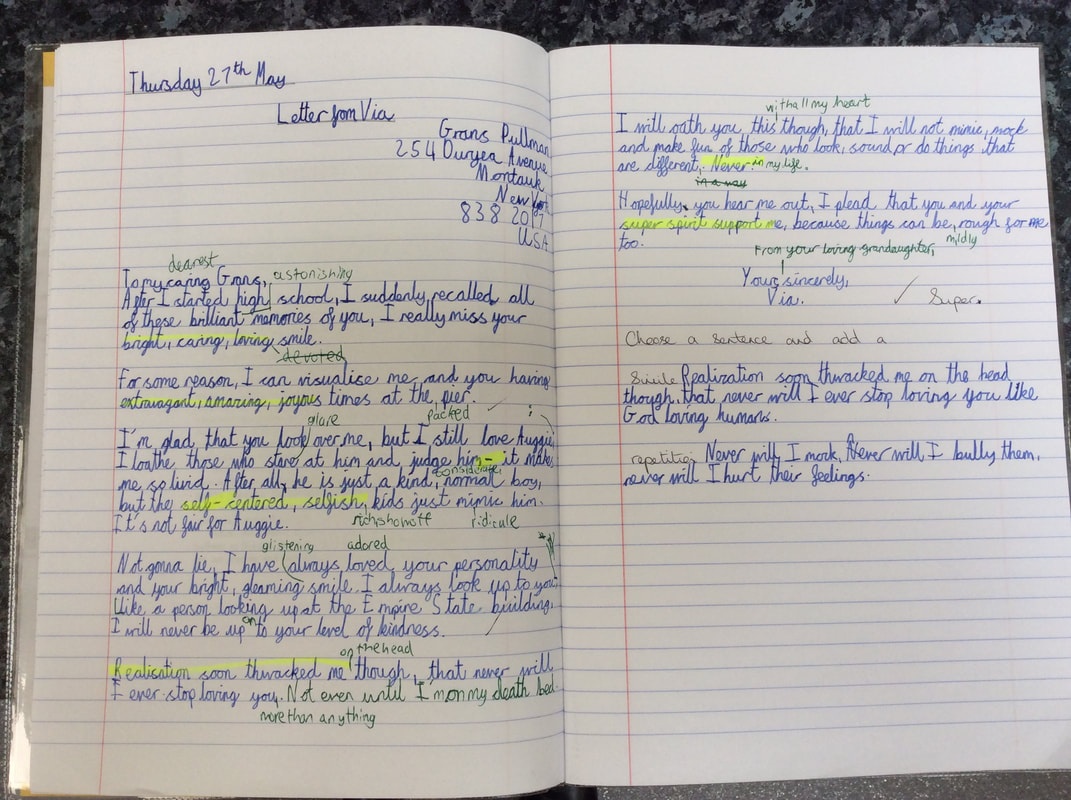 Thursday 27th May
Letter fom Via
Grans Pullman
254 Duryea Avenue
Montauk
New York
838 2017
USA
dearest
To my caring Grans, astonishing
After I started high school, I suddenly recalled all
of these brilliant memories of you, I really miss your
bright, caring, loving smile.
devoted
For some reason, I can visualise me and you having
extravagant, amazing, joyous times at the pier.
glare packed ;
I'm glad that you look over me, but I still love Auggie
I loathe those who stare at him and judge him - it makes
considerate,
me so livid. After all, he is just a kind, normal boy,
but the self-centered, selfish, kids just mimic him.
It's not fair for Auggie. rich, showoff ridicule
glistening adored
Not gonna lie, I have always loved your personality
and your bright, gleaming smile. I always look up to you
like a person looking up at the Empire State building.
I will never be up on to your level of kindness.
on the head
Realisation soon thwacked me though, that never will
I ever stop loving you. Not even until I'm on my death bed.
more than anything
with all my heart
I will oath you this though, that I will not mimic, mock
and make fun of those who look, sound or do things that
are different. Never in my life.
in a way
Hopefully, you hear me out, I plead that you and your
super spirit support me, because things can be, rough for me
too. mildly
From your loving grandaughter,
Yours sincerely,
Via. ✓ Super.
Choose a sentence and add a
Simile Realization soon thwacked me on the head
though, that never will I ever stop loving you like
God loving humans.
repetition Never will I mock, Never will I bully them,
never will I hurt their feelings.